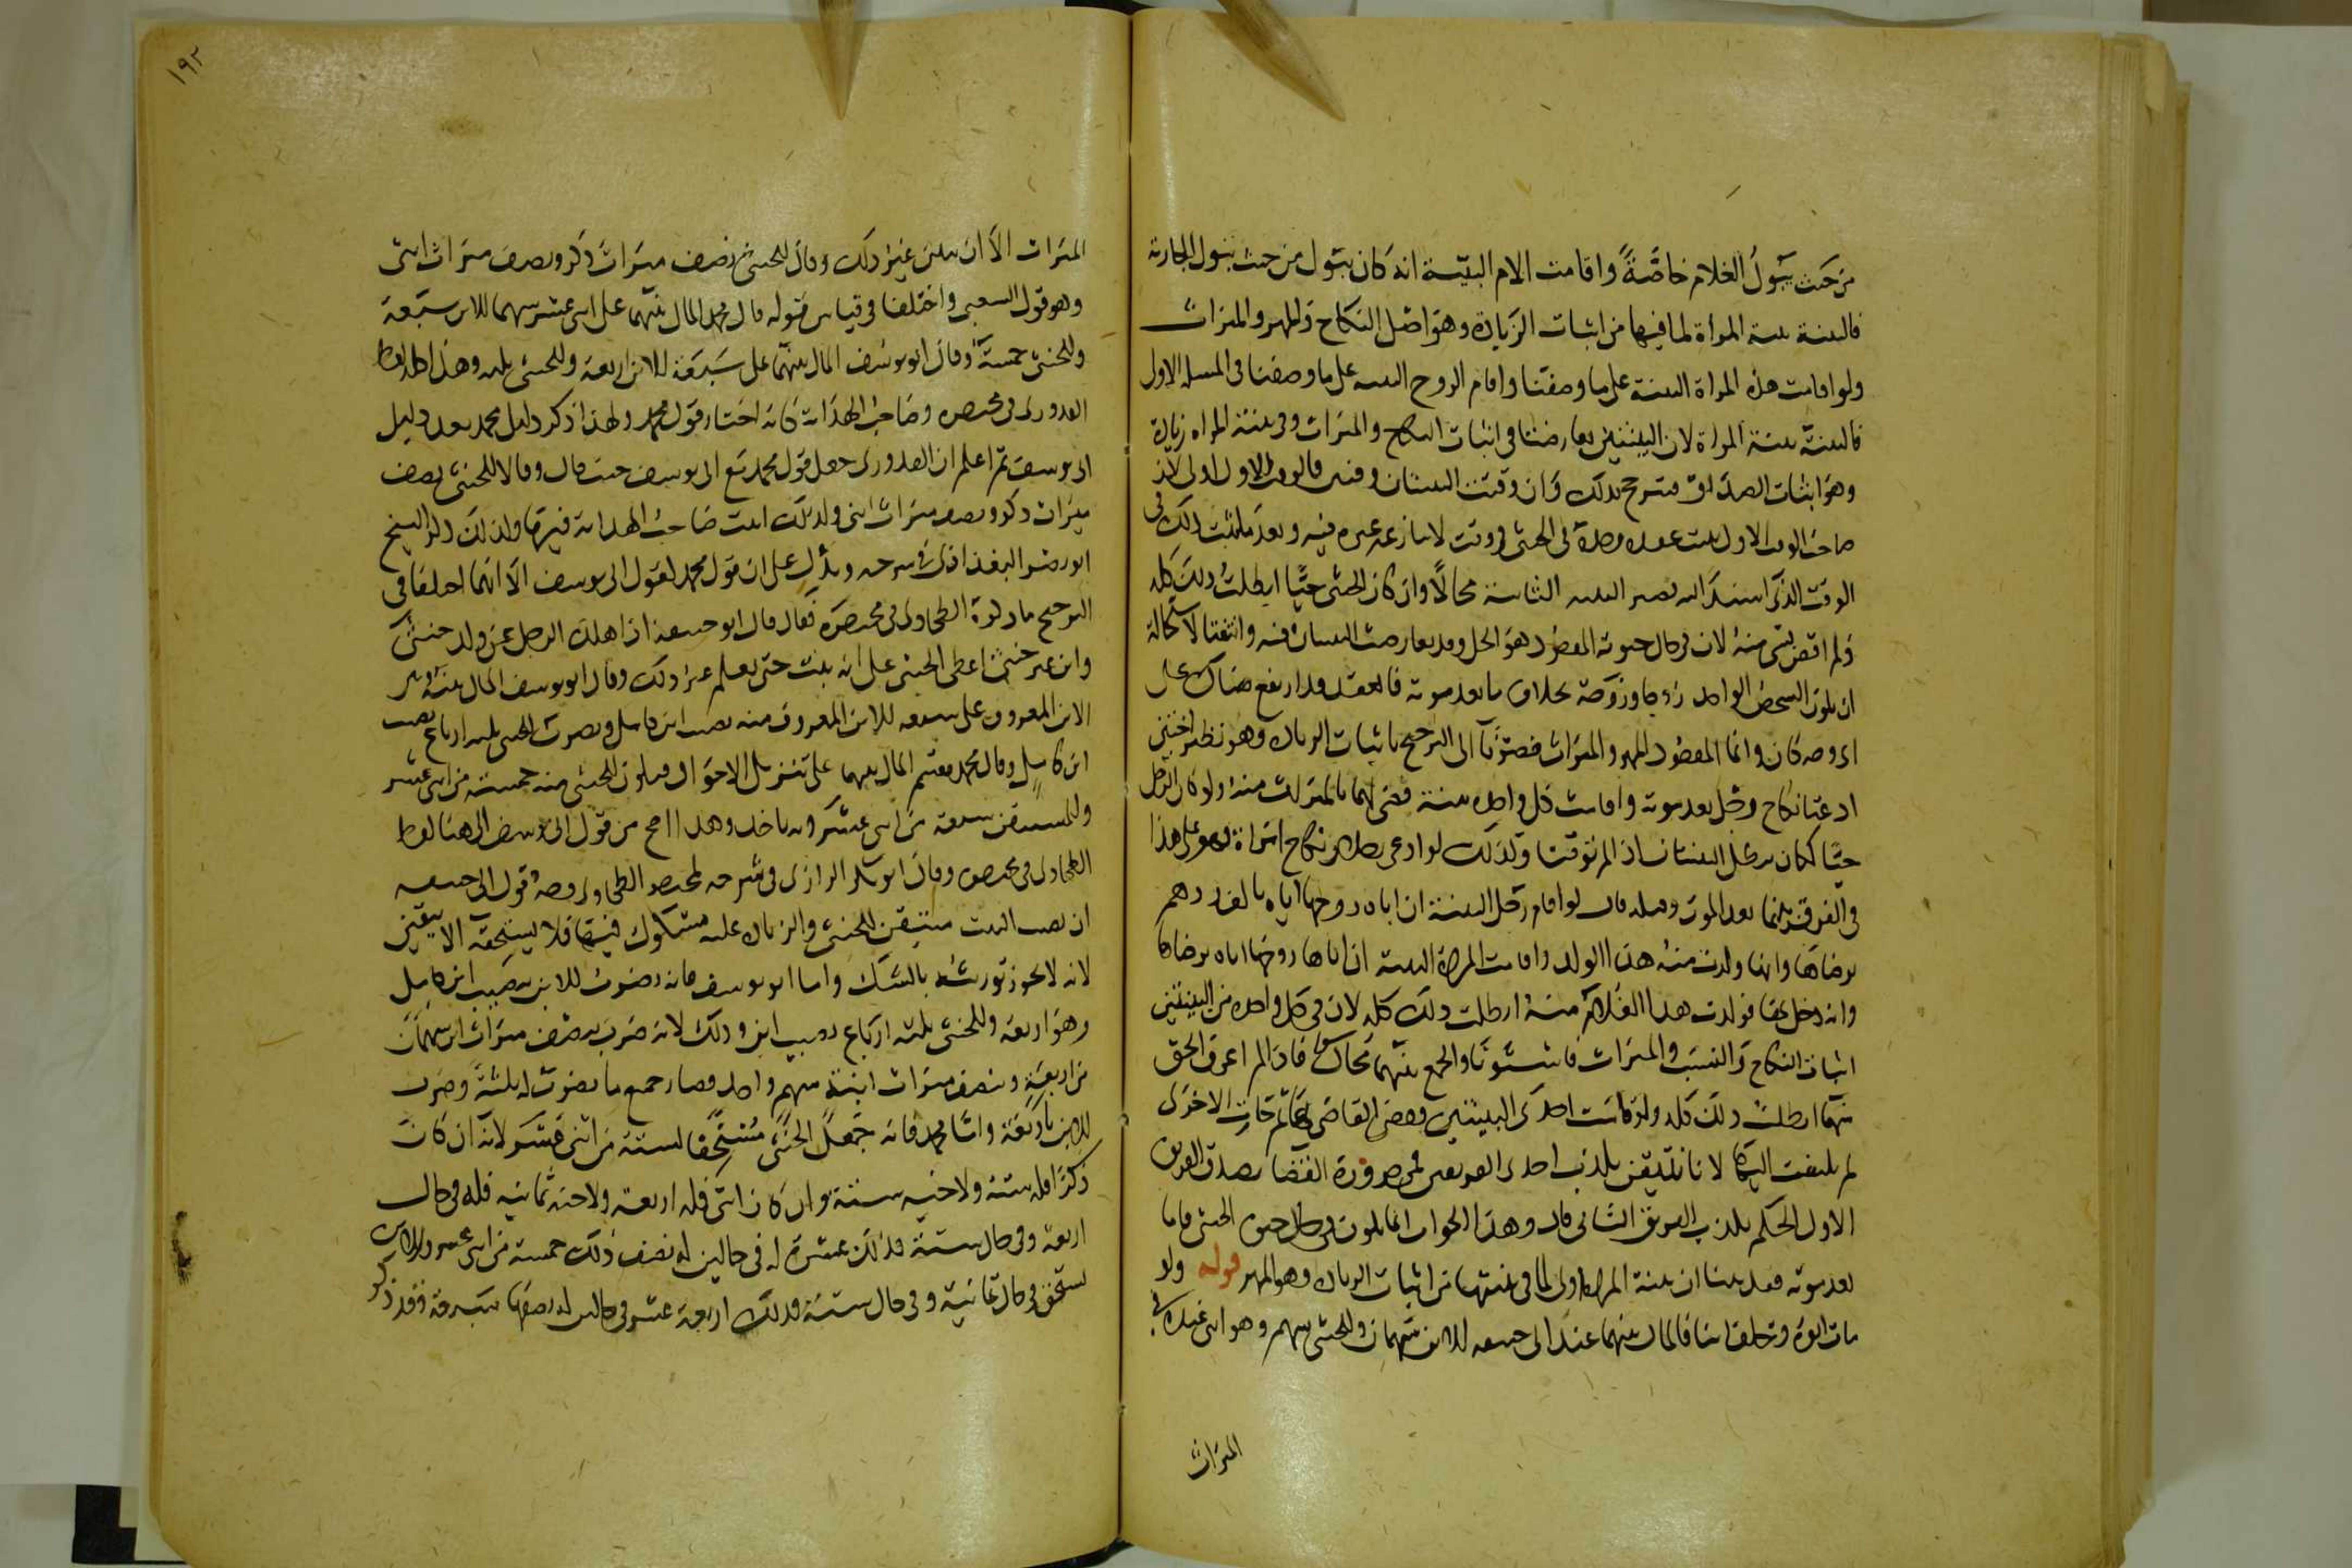 من حيث يبول الغلام خاصة واقامت الام البينة انه كان يبول من حيث تبول الجارية
فالبينة بينة المرأة لما فيها من اثبات الزيادة وهو اصل النكاح والمهر والميراث
ولو اقامت هذه المراة البينة على ما وصفنا واقام الزوج البينة على ما وصفنا فى المسله الاولى
فالبينة بينة المراة لان البينتين تعارضتا فى اثبات النكاح والميراث وفى بينة المراه زيادة
وهو اثبات الصداق فترجح بذلك وان وقتت البينتان وقتين فالوقت الاول اولى لان
صاحب الوقت الاول يثبت عقده فى الخنثى فى وقت لا ينازعه غيره فيه وبعد ما يثبت ذلك فى
الوقت الذى اسند اليه تصير البينة الثانية محالا وان كان الخنثى حيا ابطلت ذلك كله
ولم اقض بشى منه لان فى حال حيوته المقصود هو الحل وقد تعارضت البينتان فيه وانتفتا لاستحالة
ان يكون الشخص الواحد زوجا وزوجة بخلاف ما بعد موته فالعقد قد ارتفع هناك
وانما المقصود المهر والميراث فصرنا الى الترجيح باثبات الزيادة وهو نظير اختين
ادعتا نكاح رجل بعد موته واقامت كل واحدة بينة قضى لهما بالميراث منه ولو كان الرجل
حيا لكان تبطل البينتان اذا لم توقتا وكذلك لو ادعى رجلان نكاح امراة فهو على هذا
فى الفرق بينهما بعد الموت وقبله قال لو اقام رجل البينة ان اباه زوجها اياه بالف درهم
برضاها وانها ولدت منه هذا الولد واقامت المراة البينة ان اباها زوجها اياه برضاها
وانه دخل بها فولدت هذا الغلام منه ابطلت ذلك كله لان فى كل واحده من البينتين
اثبات النكاح والنسب والميراث فاستوتا والجمع بينهما محال فاذا لم اعرف الحق
منهما ابطلت ذلك كله ولو قامت احدى البينتين وقضى القاضى بها ثم جات الاخرى
لم يلتفت اليها لانا نتيقن بكذب احدى الفريقين فمن ضرورة القضا بصدق الفريق
الاول الحكم بكذب الفريق الثانى قال وهذا الجواب انما يكون فى حال حيوة الخنثى فاما
بعد موته فقد بينا ان بينة المراة اولى لما فى بينتها من اثبات الزيادة وهو المهر قوله ولو
مات ابوه وخلف ابنا فالمال بينهما عند ابى حنيفه للابن سهمان وللخنثى سهم وهو انثى عنده فى
الميراث
١٩٢
الميراث الا ان يتبين غير ذلك وقال للخنثى نصف ميراث ذكر ونصف ميراث انثى
وهو قول الشعبى واختلفا فى قياس قوله قال محمد المال بينهما على اثنى عشر سهما للابن سبعة
وللخنثى خمسة وقال ابو يوسف المال بينهما على سبعة للابن اربعة وللخنثى ثلثه وهذا كله لفظ
القدورى فى مختصره وصاحب الهداية كانه اختار قول محمد ولهذا ذكر دليل محمد بعد دليل
ابى يوسف ثم اعلم ان القدورى جعل قول محمد مع ابى يوسف حيث قال وقالا للخنثى نصف
ميراث ذكر ونصف ميراث انثى ولذلك اثبت صاحب الهداية فيهما وكذلك ذكر الشيخ
ابو نصر البغدادى فى شرحه ويدل على ان قول محمد كقول ابى يوسف الا انهما اختلفا فى
الترجيح ما ذكره الطحاوى فى مختصره فقال قال ابو حنيفة اذا هلك الرجل عن ولد خنثى
وابن غير خنثى اعطى الخنثى على انه بنت حتى يعلم غير ذلك وقال ابو يوسف المال بينه وبين
الابن المعروف على سبعه للابن المعروف منه نصيب ابن كامل ونصيب الخنثى ثلثه ارباع نصيب
ابن كامل وقال محمد يقسم المال بينهما على تنزيل الاحوال فيكون للخنثى منه خمسة من اثنى عشر
سبعة من اثنى عشر وبه ناخذ وهذا اصح من قول ابى يوسف الى هنا لفظ
الطحاوى فى مختصره وقال ابو بكر الرازى فى شرحه لمختصر الطحاوى وجه قول ابى حنيفه
ان نصيب البنت متيقن للخنثى والزيادة عليه مشكوك فيها فلا يستحقه الا بيقين
لانه لا يجوز توريثه بالشك واما ابو يوسف فانه يضرب للابن بنصيب ابن كامل
وهو اربعة وللخنثى بثلثه ارباع نصيب ابن وذلك لانه ضرب بنصف ميراث ابن سهمان
من اربعة وبنصف ميراث ابنة سهم واحد فصار جميع ما يضرب له بثلثة وضرب
للابن باربعة واما محمد فانه جعل الخنثى مستحقا لستة من اثنى عشر لانه ان كان
ذكرا فله ستة ولاخيه ستة وان كان انثى فله اربعة ولاخيه ثمانيه فله فى حال
اربعة وفى حال ستة فذلك عشرة له فى حالين له نصف ذلك خمسة من اثنى عشر وللابن
يستحق فى حال ثمانية وفى حال ستة فذلك اربعة عشر فى حالين له نصفها سبعة فقد ذكر